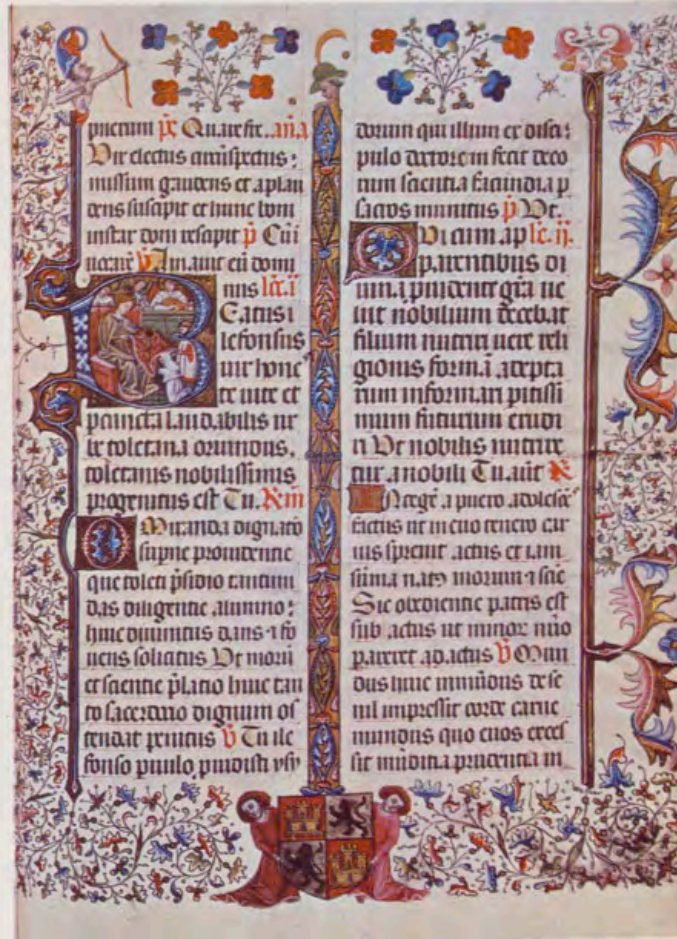 puerum p̃r Quare fre. an̄a
Vir electus circũspectus :
missum gaudens et aplau
dens suscipit et hunc bini
instar dom rescipit p̃ Cui
v̄ Amauit eũ domi
nus lc̃c.i
Beatus i
lefonsus
uir hone
te uite et
laudabilis ur
be toletana oriundus,
toletanus nobilissimis
progenitus est Tu. R̃m
O Miranda dignatio
supne prouidentie
que toleti p̃sidio tantum
das diligentie alumno :
huic diuinitus dans ⁊ fo
uens solicitus Vt morũ
et scientie p̃latio huic tan
to sacerdotio dignum os
tendat penitus v̄ Tu ile
fonso
dorum qui illum ex disci
pulo doctorem fecit deco
rum scientia facundia p
sacros munitus p̃ Vt.
QVi cum ap lc̃. ij.
parentibus di
uina p̃uidente grã ue
lut nobilium decebat
filium nutriri uere reli
gionis formã adepta
rum informari
mum futurum erudi
ri Vt nobilis nutrire
tur a nobili Tu. aut R̃
IN a puero
factus ut in euo tenero car
nis spreuit actus et iam
morum ⁊ sciẽ
Sic obedientie patris est
sub actus ut minor
pareret v̄ Mun
dus huic mundus
nil impressit corde carne
mundus quo euos exces
sit mũditia prudentia in